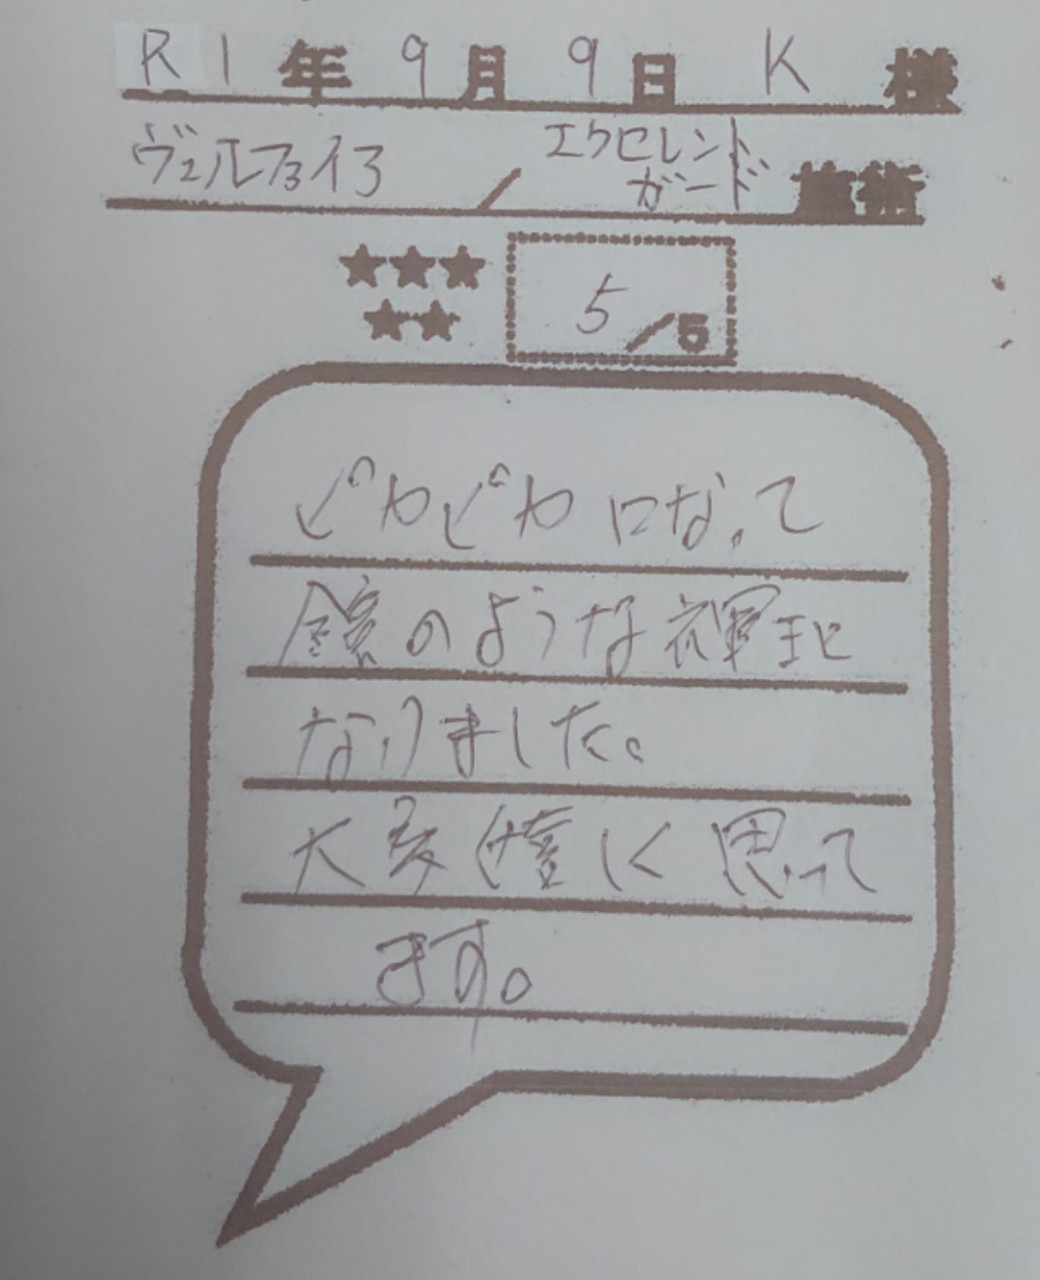 R1年9月9日 K 様
ヴェルファイア / エクセレント ガード 施術
★★★
★★
5/5
ピカピカになって
鏡のような輝きに
なりました。
大変嬉しく思って
ます。